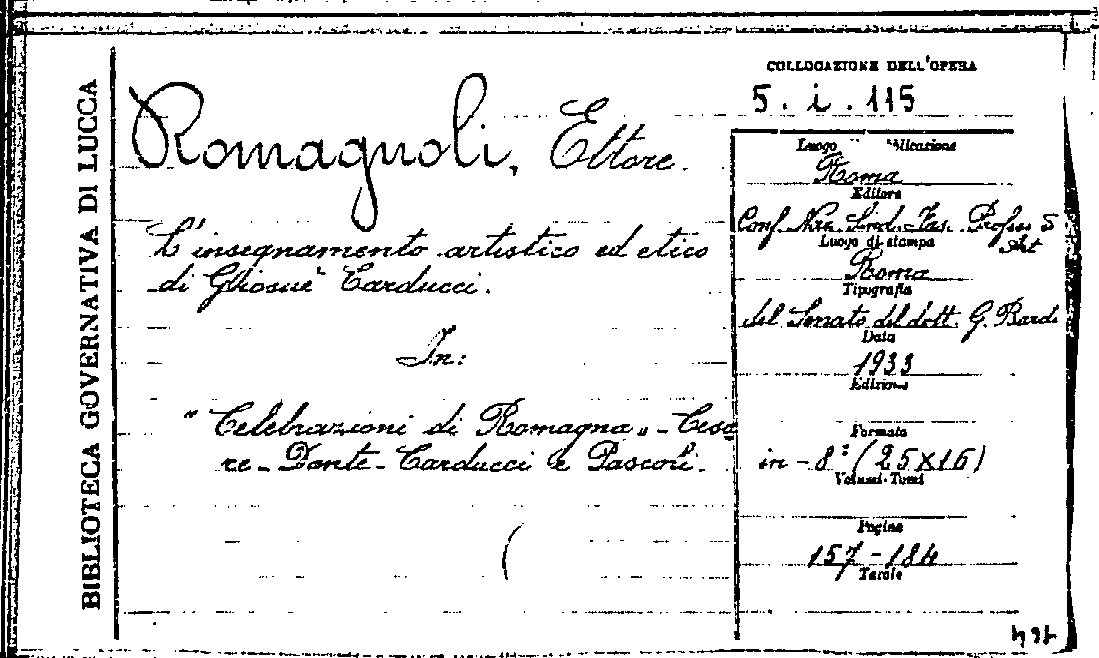 BIBLIOTECA GOVERNATIVA DI LUCCA
Romagnoli, Ettore.
L'insegnamento artistico ed etico
di Giosuè Carducci.
In:
"Celebrazioni di Romagna„ - Cesa
re - Dante - Carducci e Pascoli.
(
COLLOCAZIONE DELL'OPERA
5. i. 115
Luogo
Roma
Editore
Conf. Naz. Sind. Fas. Profess. e
Art
Luogo di stampa
Roma
Tipografia
del Senato del dott. G. Bardi
Data
1933
Edizione
Formato
in - 8° (25X16)
Volumi-Tomi
Pagine
157 - 184
Tavole